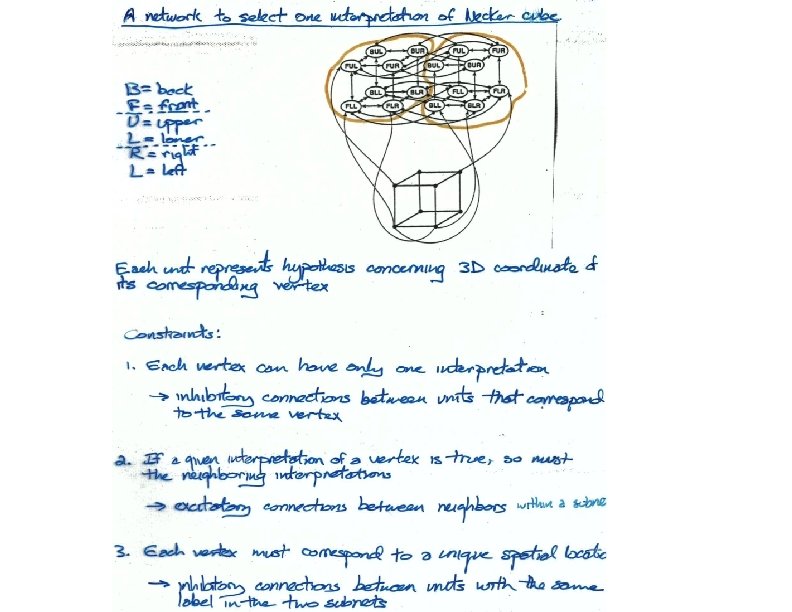 A network to select one interpretation of Necker cube
BUL BUR FUL FUR
FUL FUR BUL BUR
BLL BLR FLL FLR
FLL FLR BLL BLR
B= back
F= front
U= upper
L= lower
R= right
L= left
Each unit represents hypothesis concerning 3D coordinate of
its corresponding vertex
Constraints:
1. Each vertex can have only one interpretation
→ inhibitory connections between units that correspond
to the same vertex
2. If a given interpretation of a vertex is true, so must
the neighboring interpretations
→ excitatory connections between neighbors within a subne
3. Each vertex must correspond to a unique spatial locatio
→ inhibitory connections between units with the same
label in the two subnets